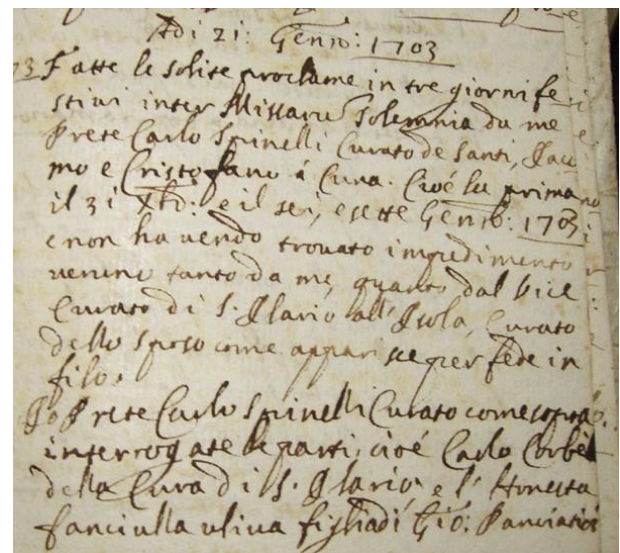 Adi 21: Genro: 1703
Fatte le solite proclame in tre giorni fe
stiui inter Missarū Solemnia da me
Prete Carlo Spinelli Curato de Santi, Jaco
mo e Cristofano à Cuna. Cioé la prima
il 31 Xbr: e il sei, e sette Genro: 1703
e non hauendo trouato impedimento
ueruno tanto da me, quanto dal Vice
Curato di S. Ilario all'Isola, Curato
dello sposo come apparisce per fede in
filo.
Io Prete Carlo Spinelli Curato come sopra
interrogate le parti, cioé Carlo
della Cura di S. Ilario, e l'Honesta
fanciulla uliua figlia di Gio: Panciatici